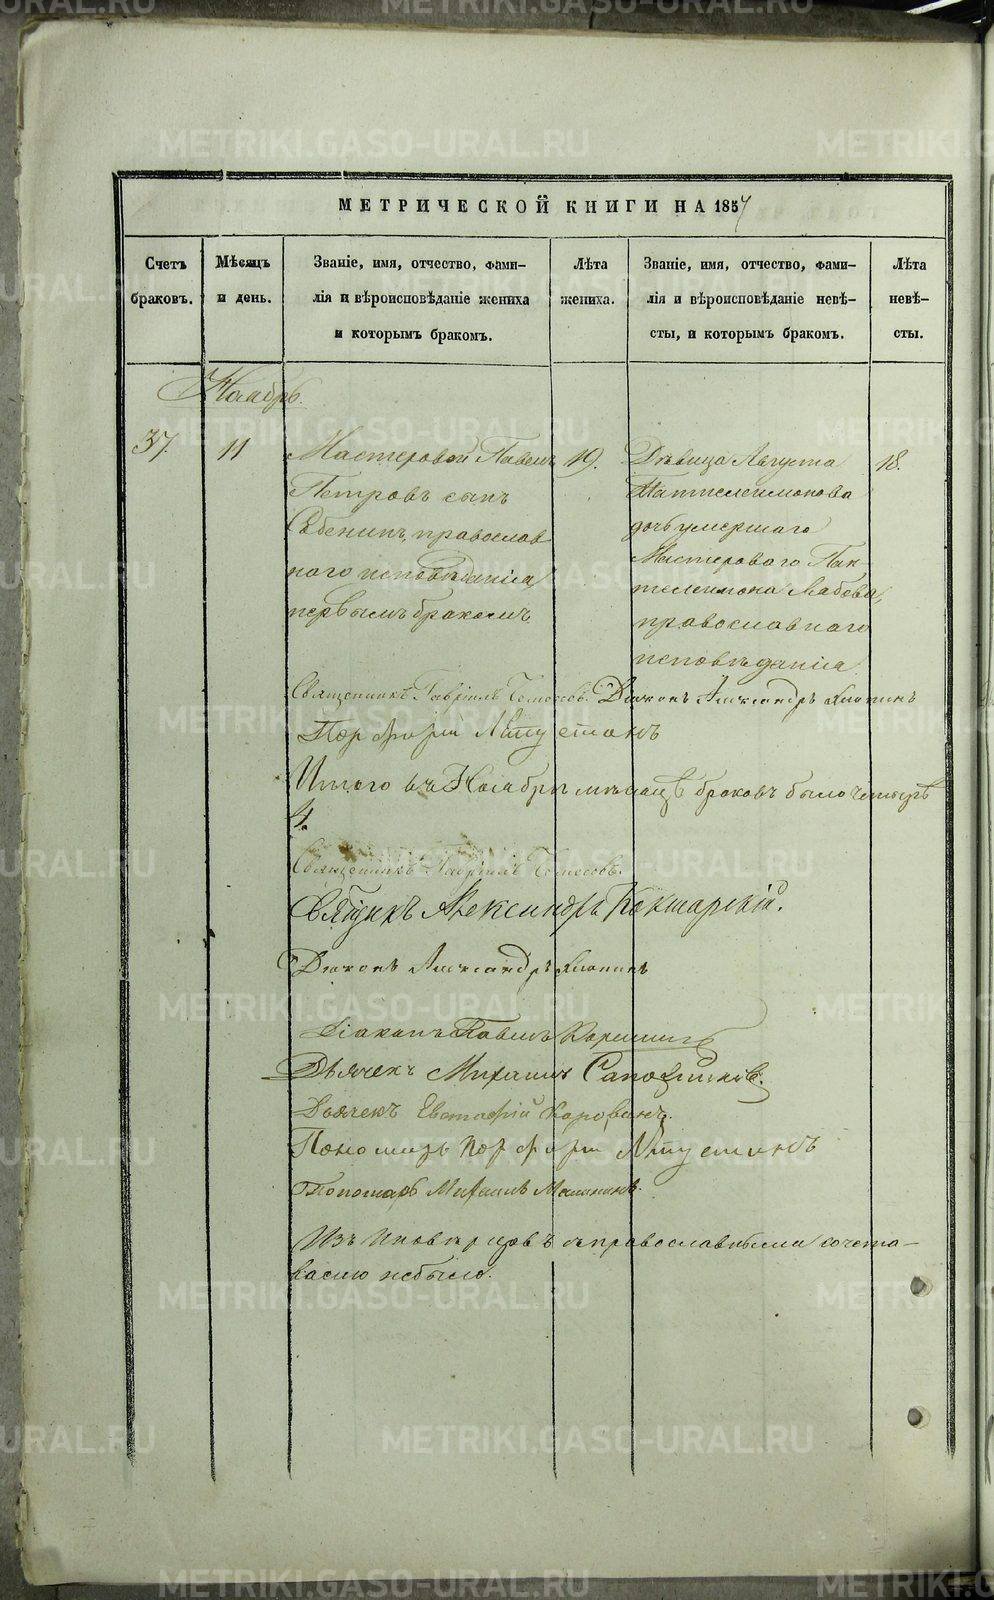 МЕТРИЧЕСКОЙ КНИГИ НА 1857
Счетъ браковъ.
Мѣсяцъ и день.
Званіе, имя, отчество, фами-
лія и вѣроисповѣданіе жениха
и которымъ бракомъ.
Лѣта жениха.
Званіе, имя, отчество, фами-
лія и вѣроисповѣданіе невѣ-
сты, и которымъ бракомъ.
Лѣта невѣ-
сты.
Ноябрь.
37. 11
Мастеровой Павелъ
Петровъ сынъ
православ
наго исповѣданія,
первымъ бракомъ.
19.
Дѣвица Августа
Пантелеимонова
дочь умершаго
Мастероваго Пан-
телеимона
православнаго
исповѣданія
18.
Священникъ Гавріилъ Діаконъ Александръ
Порфирій
Итого въ Ноябрѣ мѣсяцѣ браковъ было четыре
4.
Священникъ Гавріилъ
Священникъ Александръ
Діаконъ Александръ
Діаконъ Павелъ
Дьячекъ Михаилъ Сапожниковъ.
Дьячекъ Евстафій
Пономарь Порфирій
Пономарь Михаилъ
Изъ Иновѣрцовъ съ православными сочета-
васию небыло.
METRIKI.GASO-URAL.RU